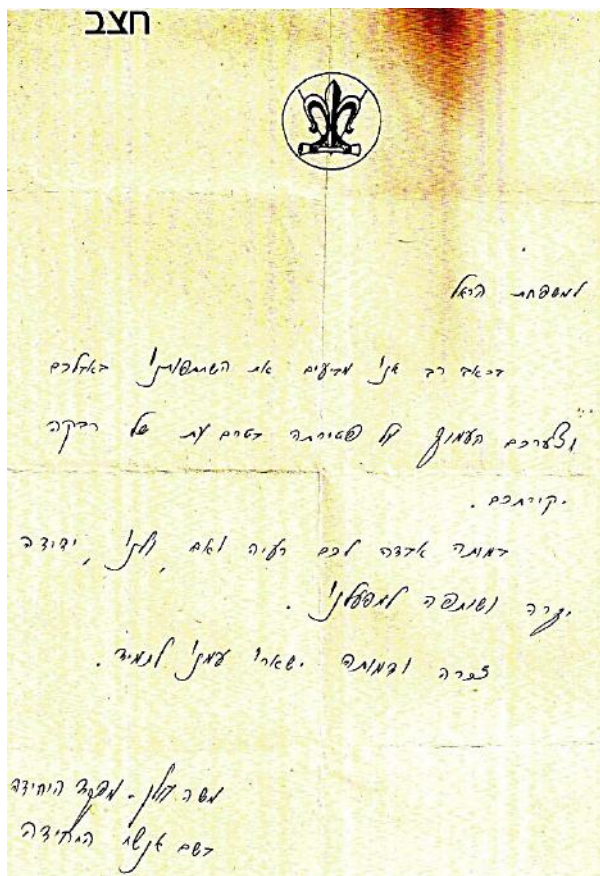 חצב
למשפחת הראל
בכאב רב אנו מביעים את השתתפותנו באבלכם
וצערכם העמוק על פטירתה בטרם עת של רבקה
יקירתכם.
במותה אבדה לכם רעיה ואם, ולנו, ידידה
יקרה ושותפה למפעלנו.
זכרה ודמותה ישארו עמנו לתמיד.
משה - מפקד היחידה
בשם אנשי היחידה